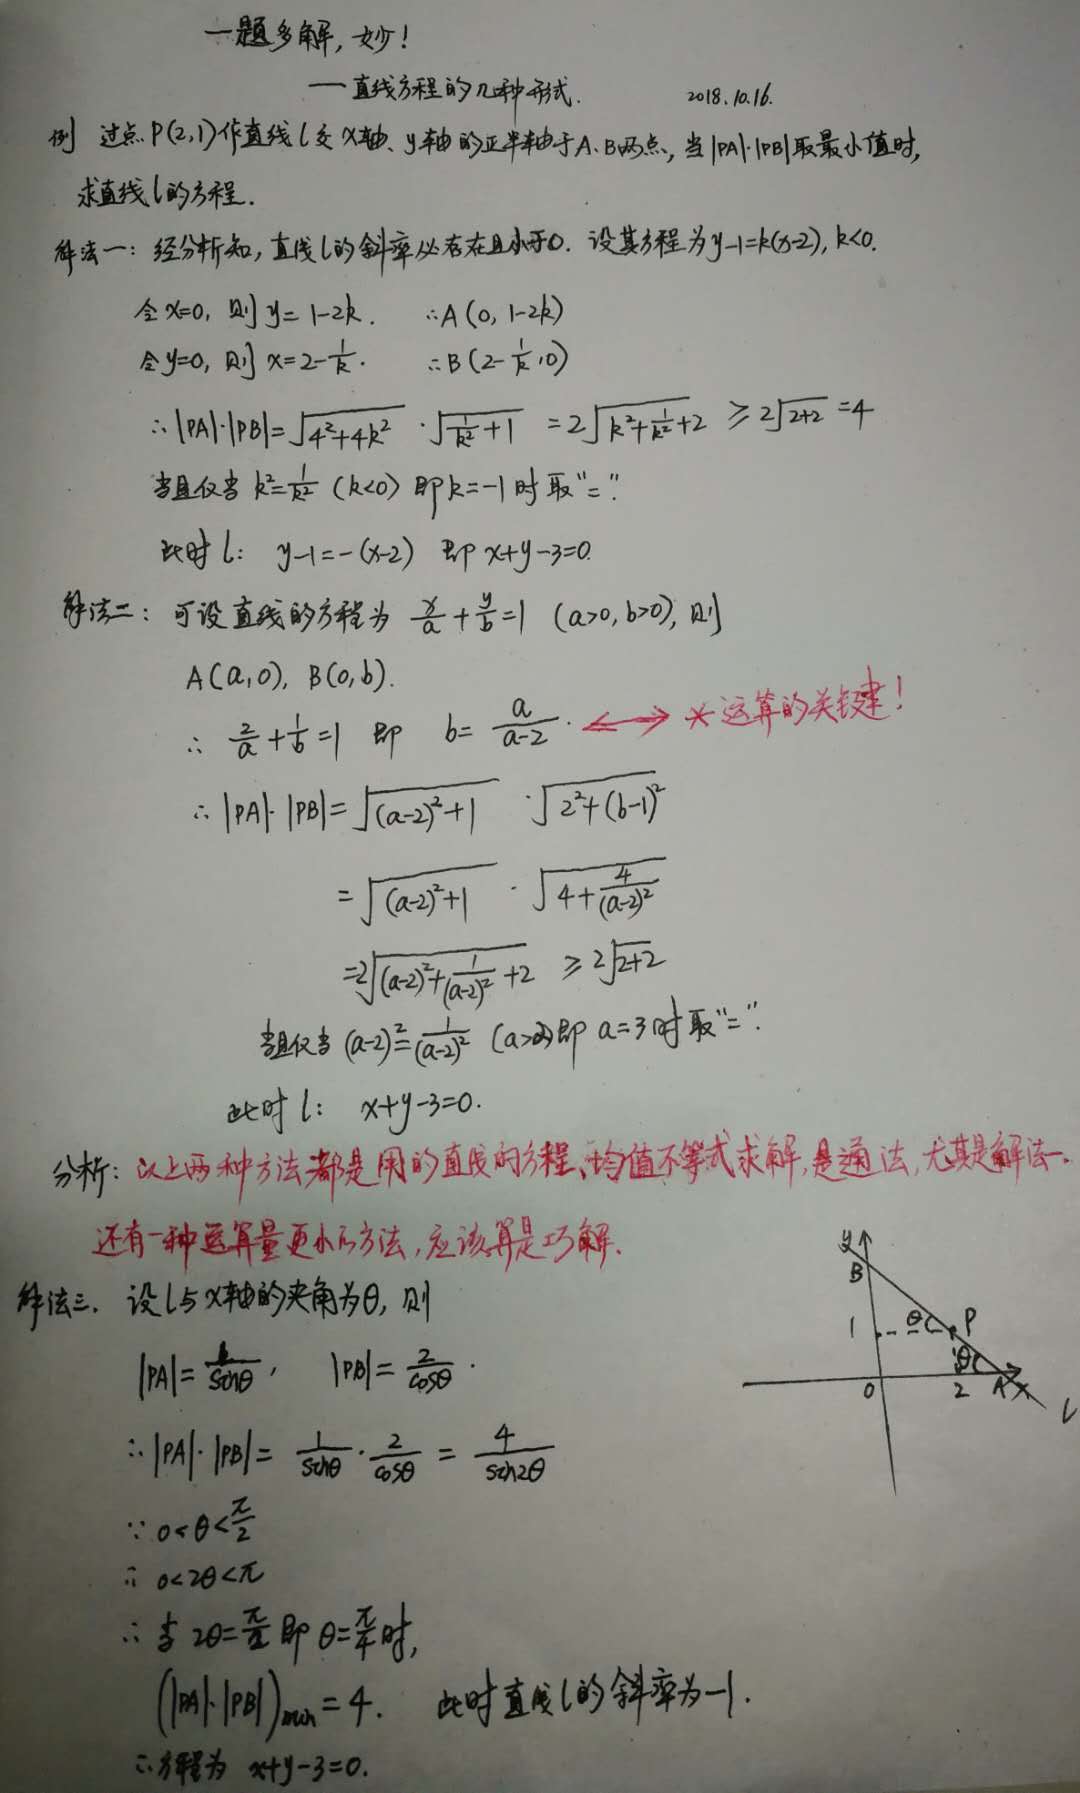 一题多解,妙!
——直线方程的几种形式. 2018.10.16.
例 过点P(2,1)作直线l交x轴、y轴的正半轴于A、B两点,当|PA|·|PB|取最小值时,
求直线l的方程.
解法一:经分析知,直线l的斜率必存在且小于0. 设其方程为y-1=k(x-2), k<0.
令x=0, 则y=1-2k. ∴A(0, 1-2k)
令y=0, 则x=2-1/k. ∴B(2-1/k,0)
∴|PA|·|PB|=√(4²+4k²) ·√(1/k²+1) =2√(k²+1/k²+2) ≥2√(2+2) =4
当且仅当 k²=1/k² (k<0) 即k=-1时取“=”.
此时l: y-1=-(x-2) 即 x+y-3=0.
解法二:可设直线的方程为 x/a+y/b=1 (a>0, b>0), 则
A(a,0), B(0,b).
∴ 2/a+1/b=1 即 b=a/(a-2). ⟷ *运算的关键!
∴|PA|·|PB|=√((a-2)²+1) ·√(2²+(b-1)²)
=√((a-2)²+1) ·√(4+4/(a-2)²)
=2√((a-2)²+1/(a-2)²+2) ≥2√(2+2)
当且仅当 (a-2)²=1/(a-2)² (a>2)即 a=3时取“=”.
此时l: x+y-3=0.
分析:以上两种方法都是用的直线的方程、均值不等式求解,是通法,尤其是解法一.
还有一种运算量更小的方法,应该算是巧解.
解法三. 设l与x轴的夹角为θ, 则
|PA|=1/sinθ, |PB|=2/cosθ.
∴|PA|·|PB|=1/sinθ·2/cosθ=4/sin2θ
∵0<θ<π/2
∴0<2θ<π
∴当2θ=π/2即θ=π/4时,
(|PA|·|PB|)min=4. 此时直线l的斜率为-1.
∴方程为 x+y-3=0.
y
B
1 θ P
θ
O 2 A x
l